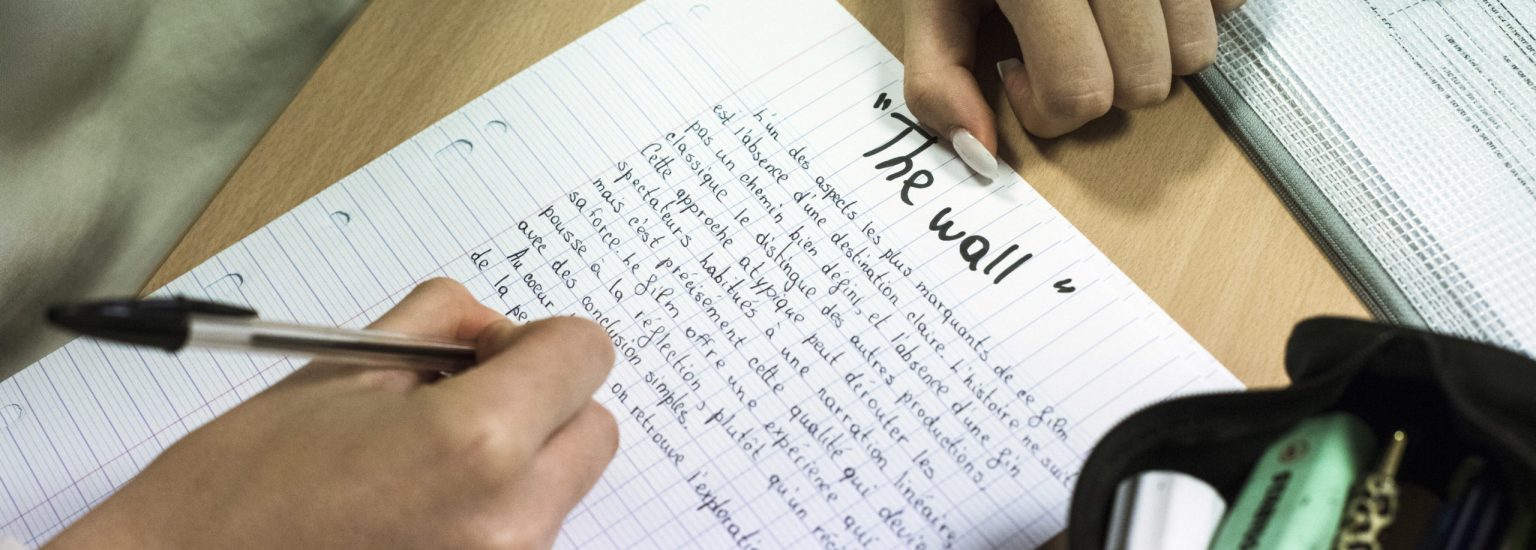 "The wall"
L'un des aspects les plus marquants de ce film
est l'absence d'une destination claire. L'histoire ne suit
pas un chemin bien défini, et l'absence d'une fin
classique le distingue des autres productions.
Cette approche atypique peut dérouter les
spectateurs habitués à une narration linéaire,
mais c'est précisément cette qualité qui
sa force. Le film offre une expérience qui
pousse à la réflection, plutôt qu'un
avec des conclusion simples.
Au coeur on retrouve
de la